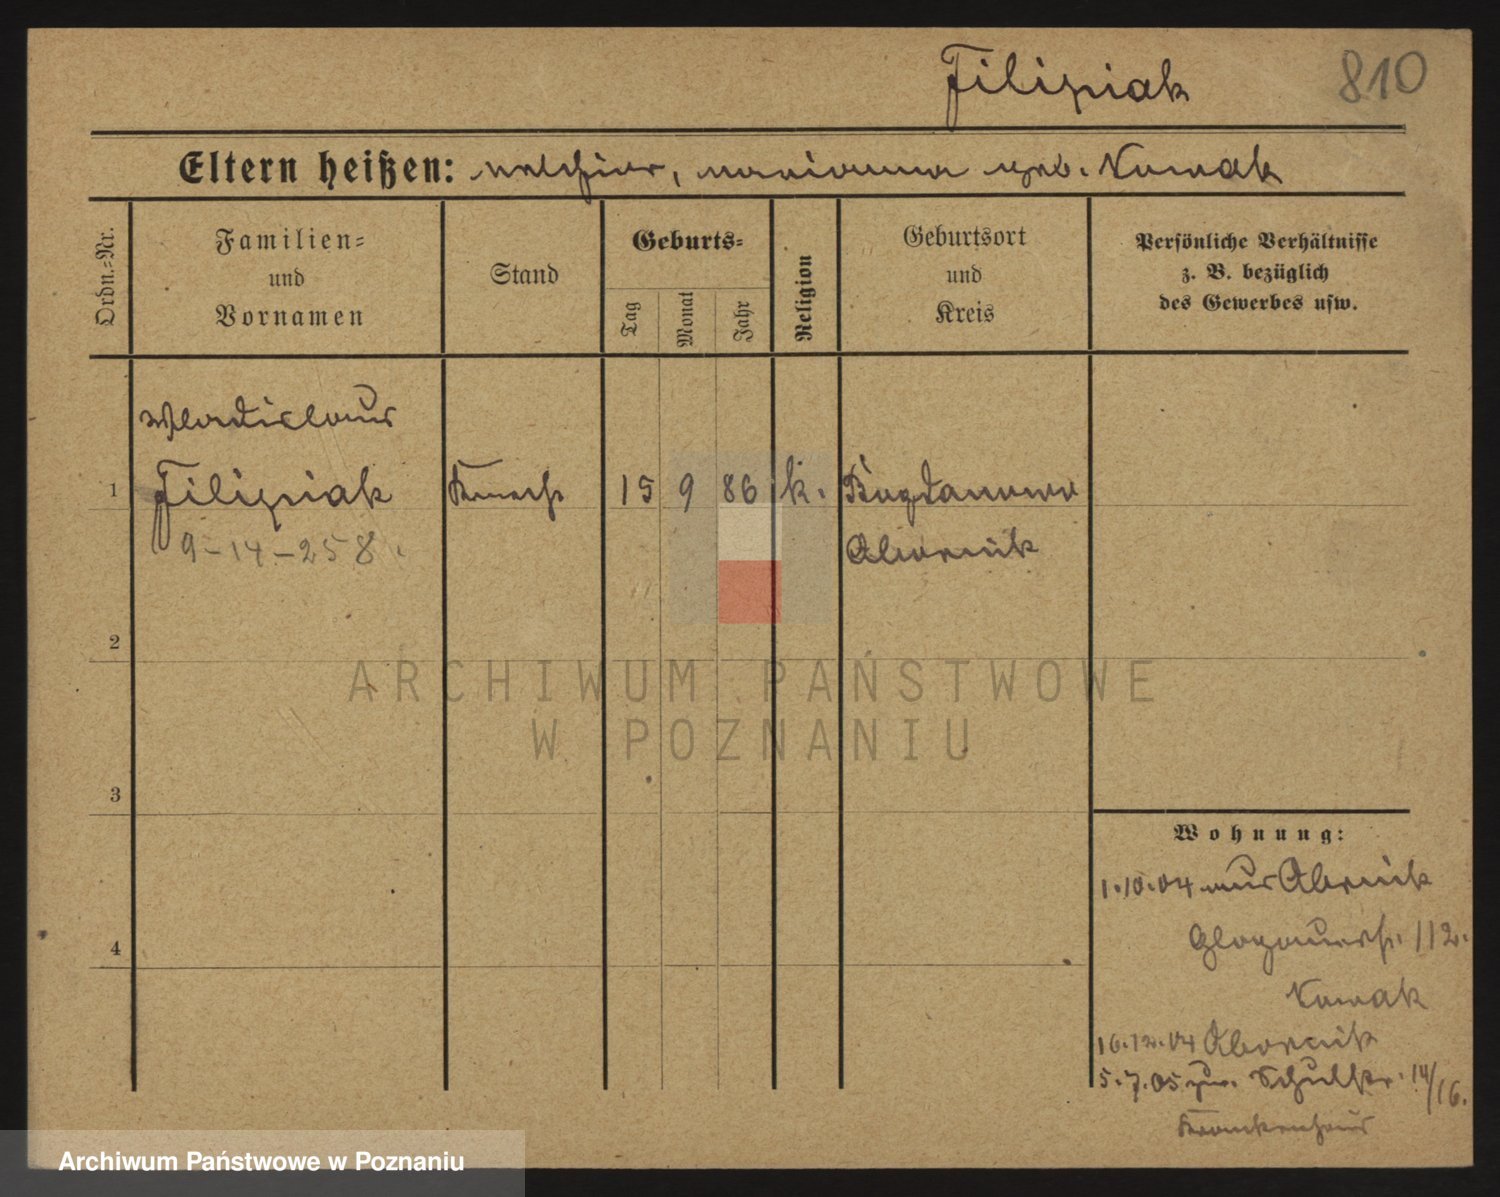 Filipiak
810
Eltern heißen: Melchior, Marianna geb. Nowak
Ordn.-Nr.
Familien-
und
Vornamen
Stand
Geburts-
Tag
Monat
Jahr
Religion
Geburtsort
und
Kreis
Persönliche Verhältnisse
z. B. bezüglich
des Gewerbes usw.
Wladislaus
1 Filipiak Knecht 15 9 86 k. Bogdanowo
9-14-258. Obornik
2
3
4
Wohnung:
1.10.04 aus Obornik
Glogauerstr. 112.
Nowak
16.12.04 Obornik
5.7.05 zur. Schulstr. 14/16.
Krankenhaus
ARCHIWUM PAŃSTWOWE
W POZNANIU
Archiwum Państwowe w Poznaniu